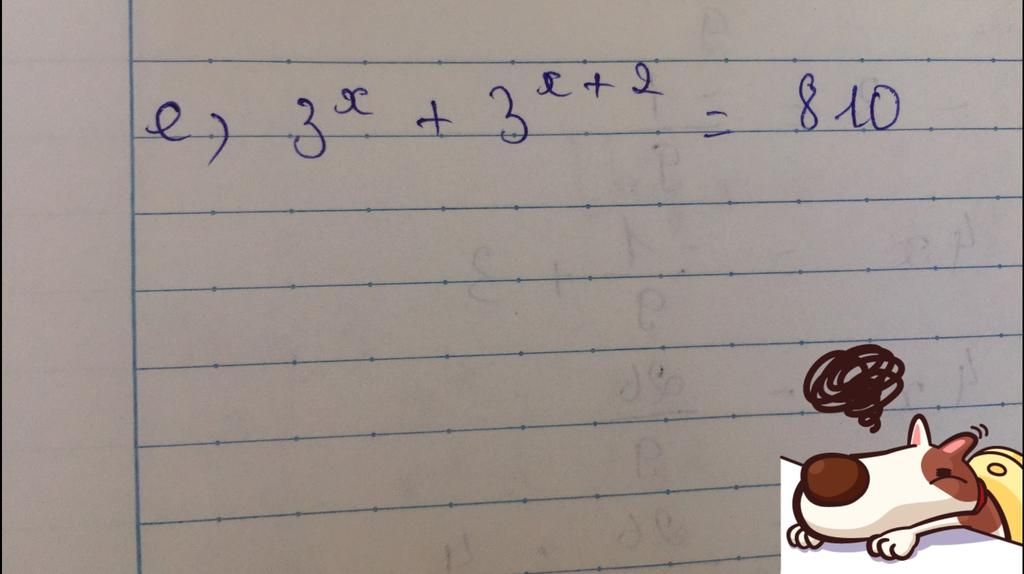 e, 3^x + 3^{x+2} = 810